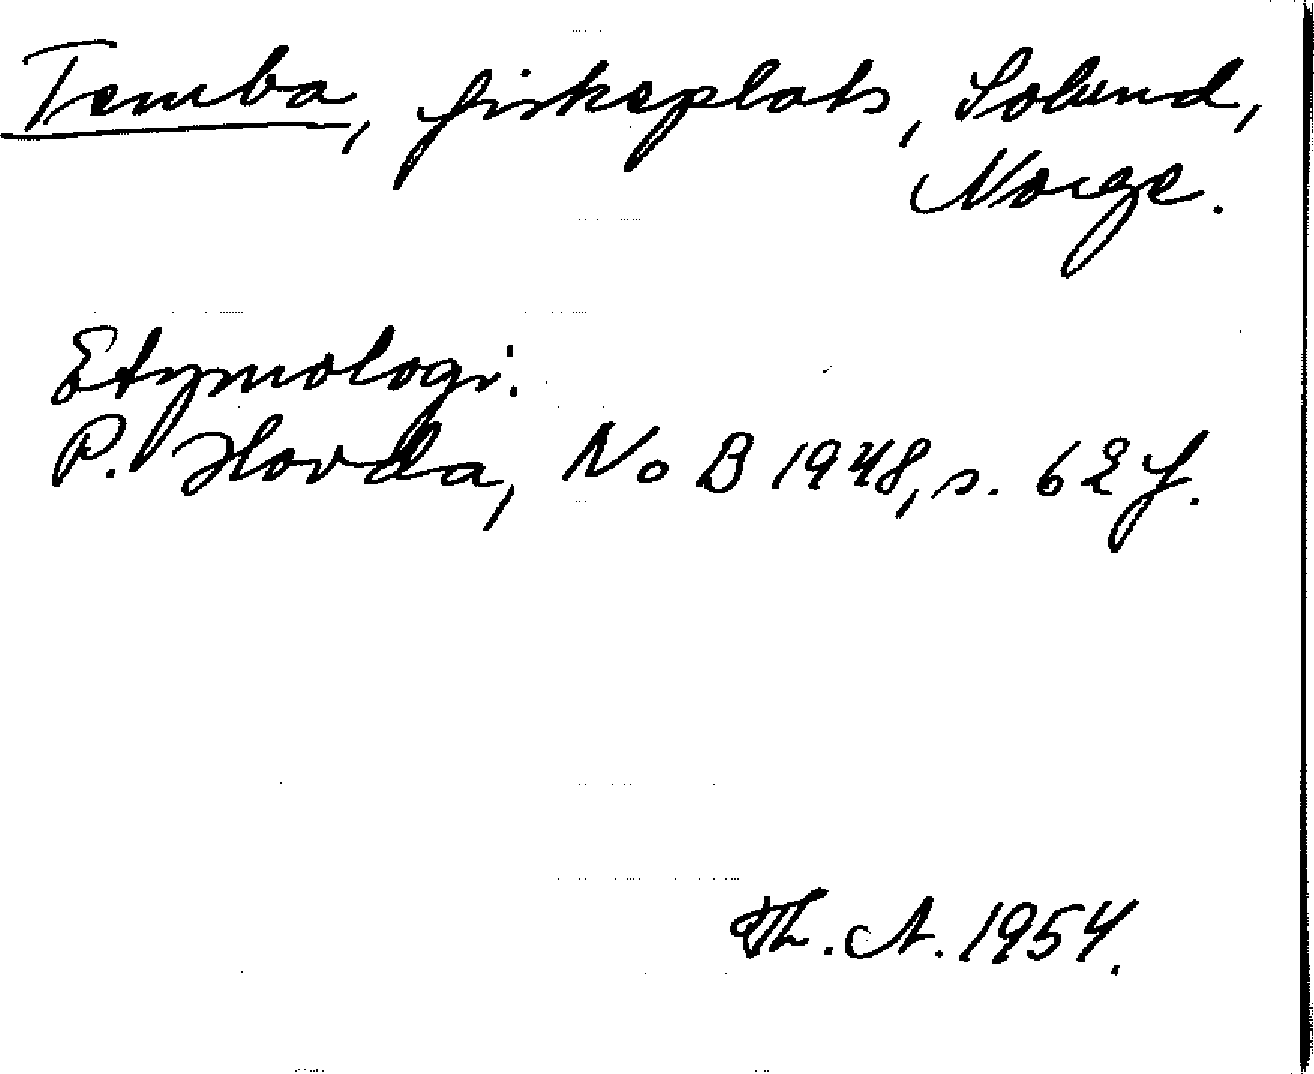 Temba, fiskeplats, Solund,
Norge.
Etymologi:
P. Hovda, NoB 1948, s. 62 f.
Th. A. 1954.